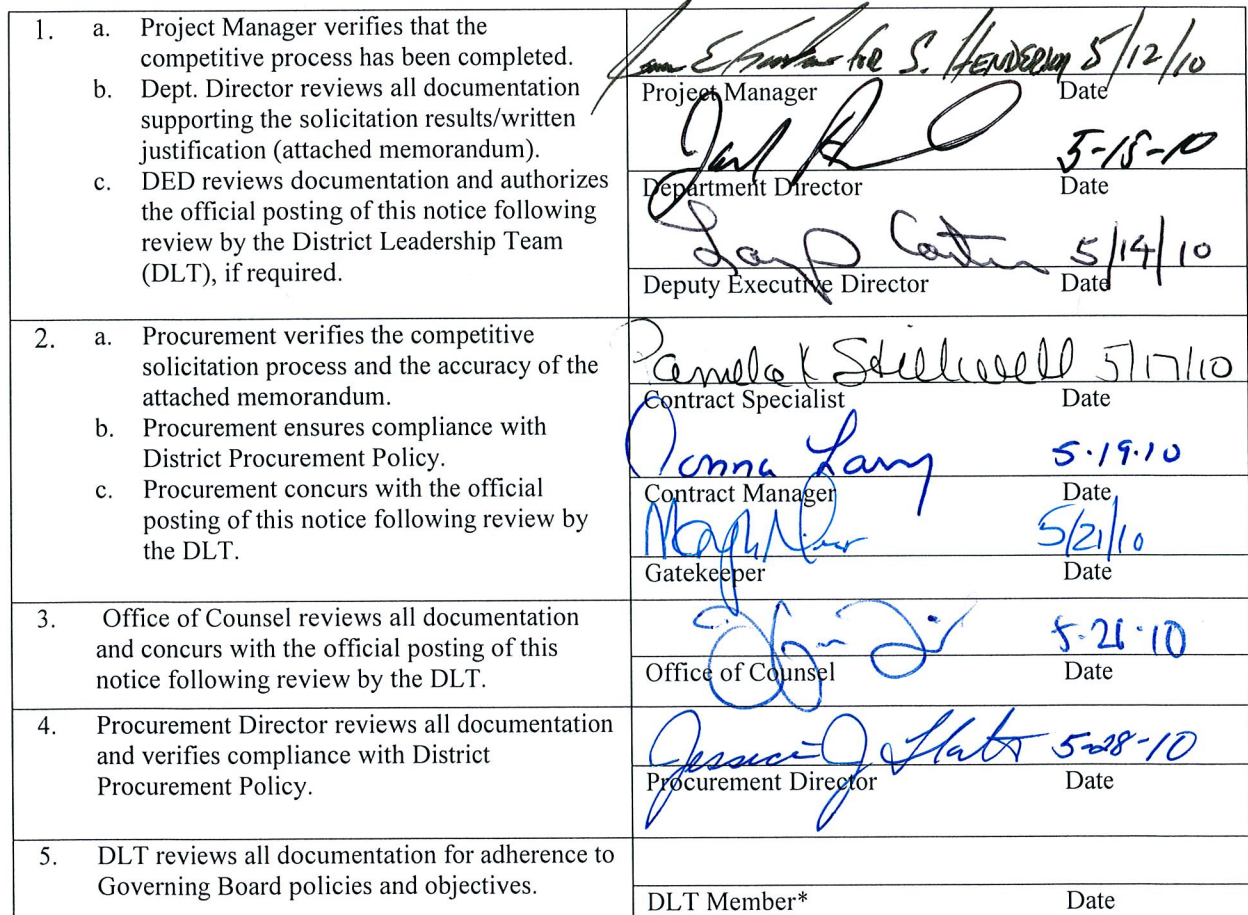 1. a. Project Manager verifies that the
competitive process has been completed.
b. Dept. Director reviews all documentation
supporting the solicitation results/written
justification (attached memorandum).
c. DED reviews documentation and authorizes
the official posting of this notice following
review by the District Leadership Team
(DLT), if required.
for S. Henderson 5/12/10
Project Manager Date
5-15-10
Department Director Date
5/14/10
Deputy Executive Director Date
2. a. Procurement verifies the competitive
solicitation process and the accuracy of the
attached memorandum.
b. Procurement ensures compliance with
District Procurement Policy.
c. Procurement concurs with the official
posting of this notice following review by
the DLT.
Pamela K Stillwell 5/17/10
Contract Specialist Date
Donna 5.19.10
Contract Manager Date
5/21/10
Gatekeeper Date
3. Office of Counsel reviews all documentation
and concurs with the official posting of this
notice following review by the DLT.
10
Office of Counsel Date
4. Procurement Director reviews all documentation
and verifies compliance with District
Procurement Policy.
Jessica J 5-28-10
Procurement Director Date
5. DLT reviews all documentation for adherence to
Governing Board policies and objectives.
DLT Member* Date